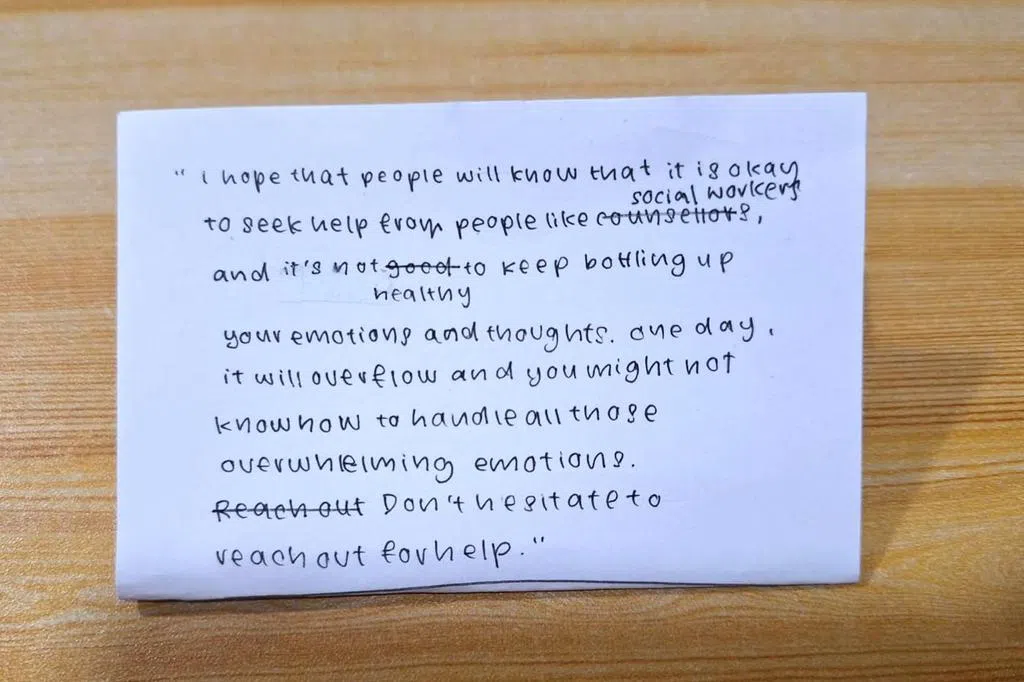 " i hope that people will know that it is okay
social workers
to seek help from people like counsellors,
and it's not good to keep bottling up
healthy
your emotions and thoughts. one day,
it will overflow and you might not
know how to handle all those
overwhelming emotions.
Reach out Don't hesitate to
reach out for help."